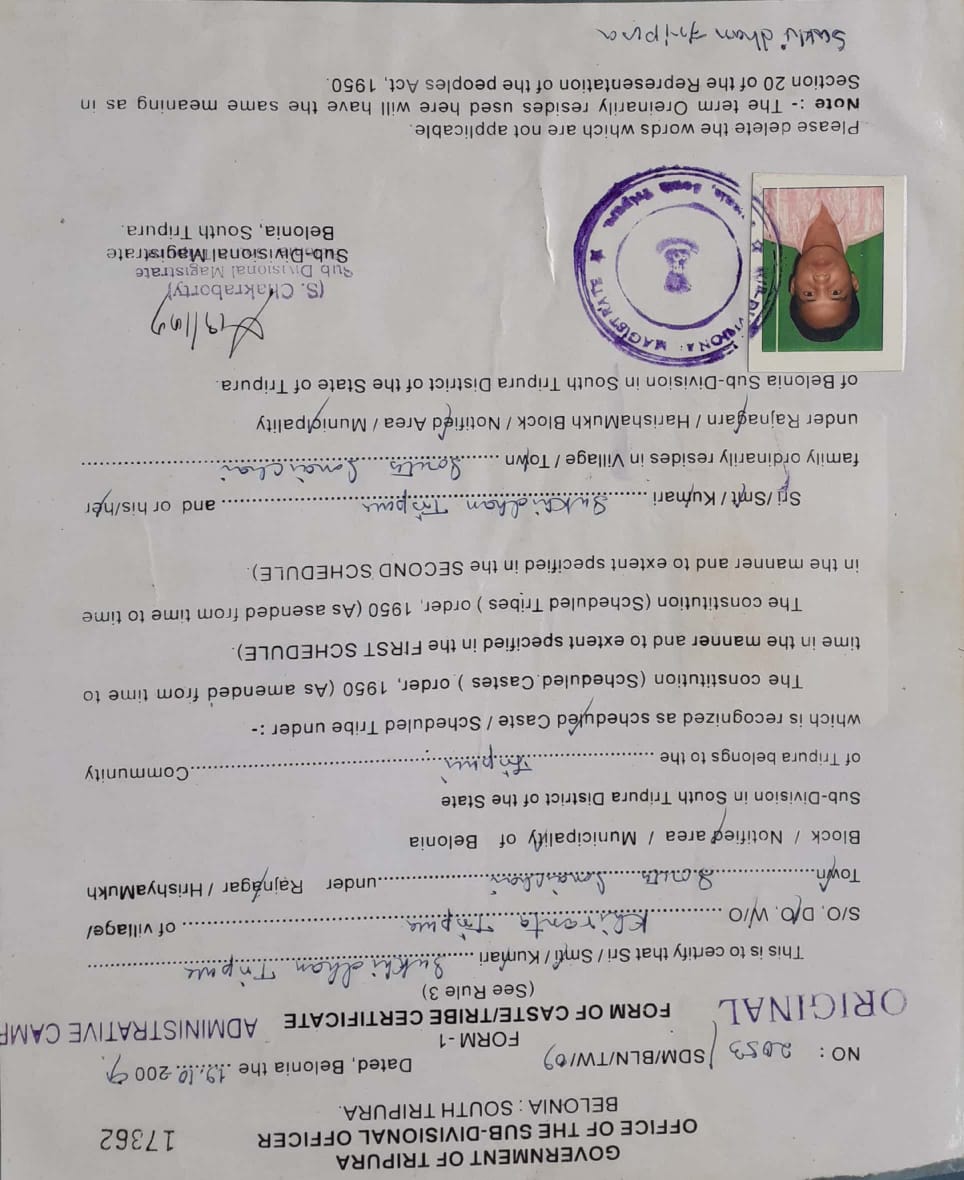 GOVERNMENT OF TRIPURA
OFFICE OF THE SUB-DIVISIONAL OFFICER
17362
BELONIA : SOUTH TRIPURA.
NO : 2053/SDM/BLN/TW/09
Dated, Belonia the 19.10.2009.
FORM -1
ORIGINAL
FORM OF CASTE/TRIBE CERTIFICATE
ADMINISTRATIVE CAMP
(See Rule 3)
This is to certify that Sri / Smti / Kumari ..... Sukhidhan Tripura ..............
S/O, D/O, W/O ............ Khiranta Tripura ................ of village/
Town............... South Sonaichari ...............under Rajnagar / HrishyaMukh
Block / Notified area / Municipality of Belonia
Sub-Division in South Tripura District of the State
of Tripura belongs to the .................. Tripuri ...................Community
which is recognized as scheduled Caste / Scheduled Tribe under :-
The constitution (Scheduled Castes ) order, 1950 (As amended from time to
time in the manner and to extent specified in the FIRST SCHEDULE).
The constitution (Scheduled Tribes ) order, 1950 (As asended from time to time
in the manner and to extent specified in the SECOND SCHEDULE).
Sri /Smt / Kumari ..... Sukhidhan Tripura ................ and or his/her
family ordinarily resides in Village / Town ..... South Sonaichari ................
under Rajnagarn / HarishaMukh Block / Notified Area / Municipality
of Belonia Sub-Division in South Tripura District of the State of Tripura.
MAGISTRATE
South Tripura
(S. Chakraborty)
Sub Divisional Magistrate
Sub-Divisional Magistrate
Belonia, South Tripura.
Please delete the words which are not applicable.
Note :- The term Oreinarily resides used here will have the same meaning as in
Section 20 of the Representation of the peoples Act, 1950.
Sukhi dhan tripura